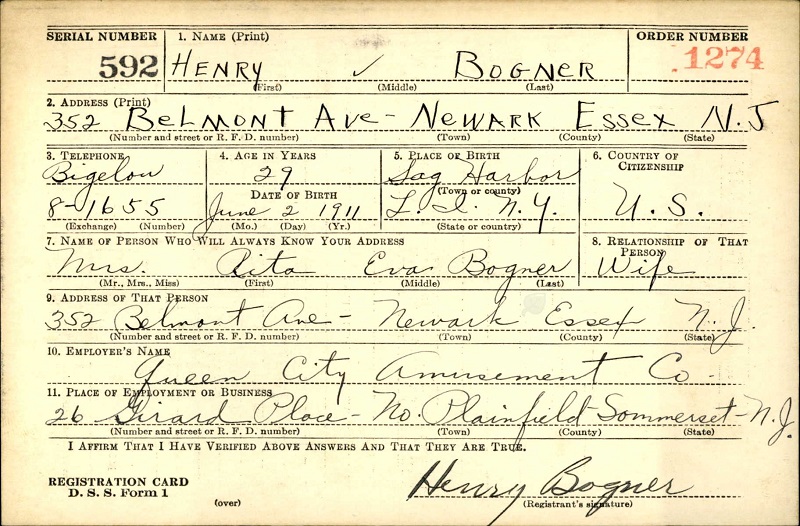 SERIAL NUMBER 1. NAME (Print) ORDER NUMBER
592 HENRY ✓ BOGNER 1274
(First) (Middle) (Last)
2. ADDRESS (Print)
352 BELMONT AVE - NEWARK ESSEX N.J
(Number and street or R. F. D. number) (Town) (County) (State)
3. TELEPHONE 4. AGE IN YEARS 5. PLACE OF BIRTH 6. COUNTRY OF CITIZENSHIP
Bigelow 29 Sag Harbor
DATE OF BIRTH (Town or county)
8-1655 June 2 1911 L. I. N.Y. U.S.
(Exchange) (Number) (Mo.) (Day) (Yr.) (State or country)
7. NAME OF PERSON WHO WILL ALWAYS KNOW YOUR ADDRESS 8. RELATIONSHIP OF THAT PERSON
Mrs. Rita Eva Bogner Wife
(Mr., Mrs., Miss) (First) (Middle) (Last)
9. ADDRESS OF THAT PERSON
352 Belmont Ave - Newark Essex N.J.
(Number and street or R. F. D. number) (Town) (County) (State)
10. EMPLOYER'S NAME
Queen City Amusement Co.
11. PLACE OF EMPLOYMENT OR BUSINESS
26 Girard Place - No. Plainfield - Sommerset - N.J.
(Number and street or R. F. D. number) (Town) (County) (State)
I AFFIRM THAT I HAVE VERIFIED ABOVE ANSWERS AND THAT THEY ARE TRUE.
REGISTRATION CARD
D. S. S. Form 1
(over)
Henry Bogner
(Registrant's signature)